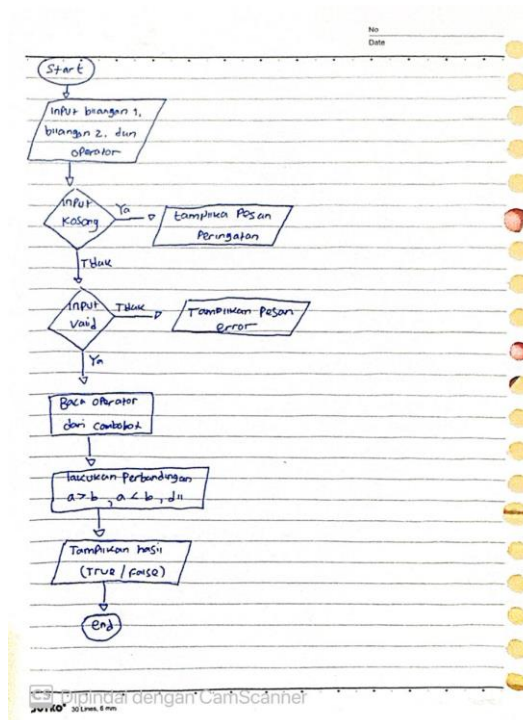 No
Date
Start
Input bilangan 1,
bilangan 2, dan
operator
Input
Kosong
Ya
tampilka Pesan
Peringatan
Tidak
Input
Valid
Tidak
Tampilkan Pesan
error
Ya
Baca operator
dari combobox
lakukan Perbandingan
a > b , a < b , dll
Tampilkan hasil
(True / False)
end
CS Dipindai dengan CamScanner
30 Lines, 6 mm